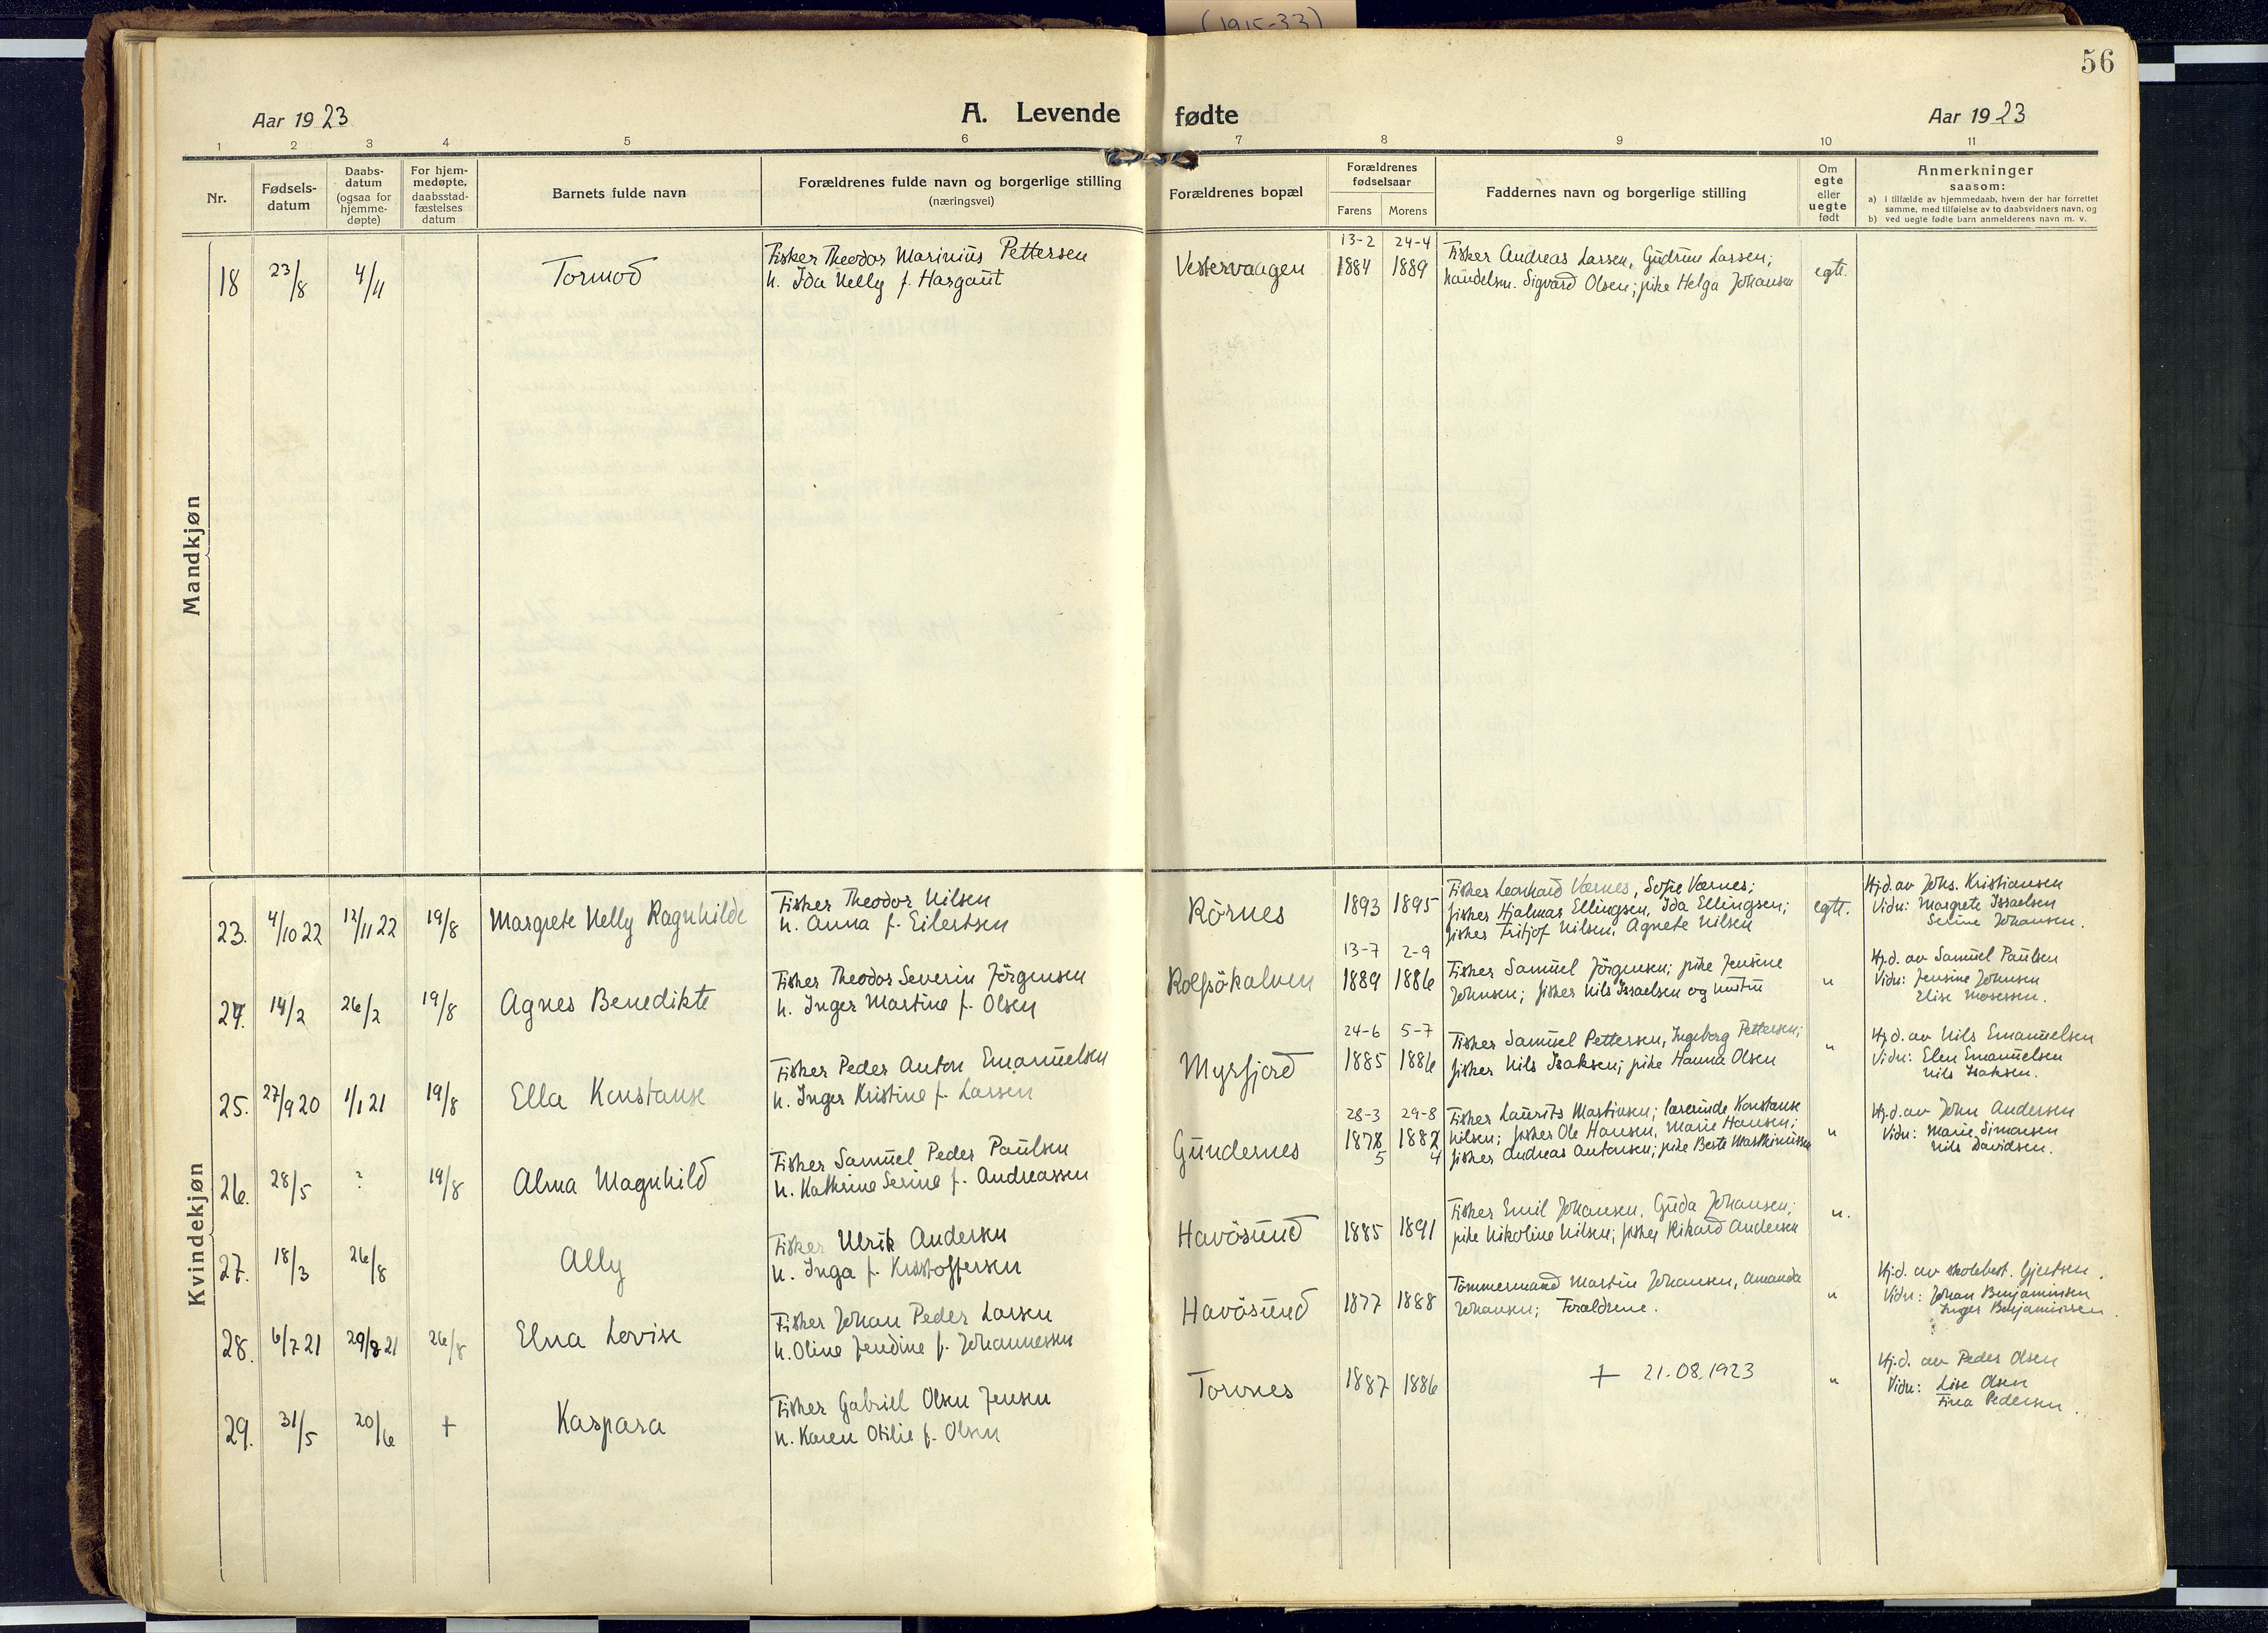 (1915-33)
56
Aar 1923
A. Levende fødte
Aar 1923
1 2 3 4 5 6 7 8 9 10 11
Nr.
Fødsels-
datum
Daabs-
datum
(ogsaa for
hjemme-
døpte)
For hjem-
medøpte,
daabsstad-
fæstelses
datum
Barnets fulde navn
Forældrenes fulde navn og borgerlige stilling
(næringsvei)
Forældrenes bopæl
Forældrenes
fødselsaar
Farens Morens
Faddernes navn og borgerlige stilling
Om
egte
eller
uegte
født
Anmerkninger
saasom:
a) i tilfælde av hjemmedaab, hvem der har forrettet
samme, med tilføielse av to daabsvidners navn, og
b) ved uegte fødte barn anmelderens navn m. v.
Mandkjøn
18 23/8 4/11 Tormod
Fisker Theodor Marinius Pettersen
h. Ida Nelly f. Hargaut
Vestervaagen
13-2 24-4
1884 1889
Fisker Andreas Larsen, Gudrun Larsen;
handelsm. Sigvard Olsen; pike Helga Johansen
egte.
Kvindekjøn
23. 4/10 22 12/11 22 19/8 Margrete Nelly Ragnhilde
Fisker Theodor Nilsen
h. Anna f. Eilertsen
Rörnes
1893 1895
Fisker Leonhard Værnes, Sofie Værnes;
fisker Hjalmar Ellingsen, Ida Ellingsen;
fisker Fritjof Nilsen, Agnete Nilsen
egte.
Hj.d. av Johs. Kristiansen
Vidn: Margrete Issaelsen
Serine Johansen.
24. 14/2 26/2 19/8 Agnes Benedikte
Fisker Theodor Severin Jörgensen
h. Inger Martine f. Olsen
Rolfsökalven
13-7 2-9
1889 1886
Fisker Samuel Jörgensen; pike Jensine
Johnsen; fisker Nils Israelsen og hustru
"
Hj.d. av Samuel Paulsen
Vidn: Jensine Johnsen
Elise Mosessen.
25. 27/9 20 1/1 21 19/8 Ella Konstanse
Fisker Peder Anton Emanuelsen
h. Inger Kristine f. Larsen
Myrfjord
24-6 5-7
1885 1886
Fisker Samuel Pettersen, Ingeborg Pettersen;
fisker Nils Isaksen; pike Hanna Olsen
"
Hj.d. av Nils Emanuelsen
Vidn: Elen Emanuelsen
Nils Isaksen.
26. 28/5 ? 19/8 Alma Magnhild
Fisker Samuel Peder Paulsen
h. Kathrine Serine f. Andreassen
Gundernes
28-3 29-8
1878 1882
5 4
Fisker Laurits Martinsen; lærerinde Konstanse
Nilsen; fisker Ole Hansen, Marie Hansen;
fisker Andreas Antonsen; pike Berte
"
Hj.d. av John Andersen
Vidn: Marie Simonsen
Nils Davidsen.
27. 18/3 26/8 Ally
Fisker Ulrik Andersen
h. Inga f. Kristoffersen
Havösund
1885 1891
Fisker Emil Johansen, Guda Johansen;
pike Nikoline Nilsen; fisker Rikard Andersen
".
28. 6/7 21 29/8 21 26/8 Elna Lovise
Fisker Johan Peder Larsen
h. Oline Jendine f. Johannessen
Havösund
1877 1888
Tömmermand Martin Johansen, Amanda
Johansen; Forældrene.
"
Hj.d. av skolebest. Gjertsen.
Vidn: Johan Benjaminsen
Inger Benjaminsen.
29. 31/5 20/6 + Kaspara
Fisker Gabriel Olsen Jensen
h. Karen Otilie f. Olsen
Torvnes
1887 1886
+ 21.08.1923
"
Hj.d. av Peder Olsen
Vidn: Lise Olsen
Fina Pedersen.